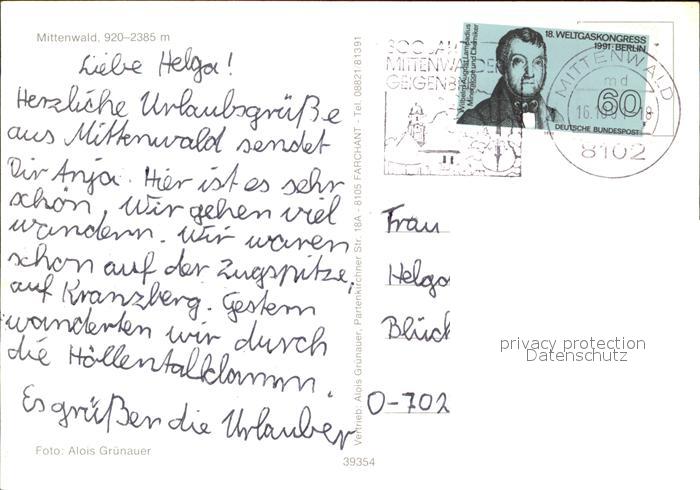 Mittenwald, 920–2385 m
Liebe Helga!
Herzliche Urlaubsgrüße
aus Mittenwald sendet
Dir Anja. Hier ist es sehr
schön. Wir gehen viel
wandern. Wir waren
schon auf der Zugspitze,
auf Kranzberg. Gestern
wanderten wir durch
die Höllentalklamm.
Es grüßen die Urlauber
Foto: Alois Grünauer
Vertrieb: Alois Grünauer, Partenkirchner Str. 18A - 8105 FARCHANT - Tel. 08821/81391
39354
MITTENWALD
GEIGENB
18. WELTGASKONGRESS
1991 · BERLIN
Wilhelm August Lampadius
Metallurge und Chemiker
60
DEUTSCHE BUNDESPOST
MITTENWALD
md
8102
Frau
Helga
Blüch
O-702
privacy protection
Datenschutz